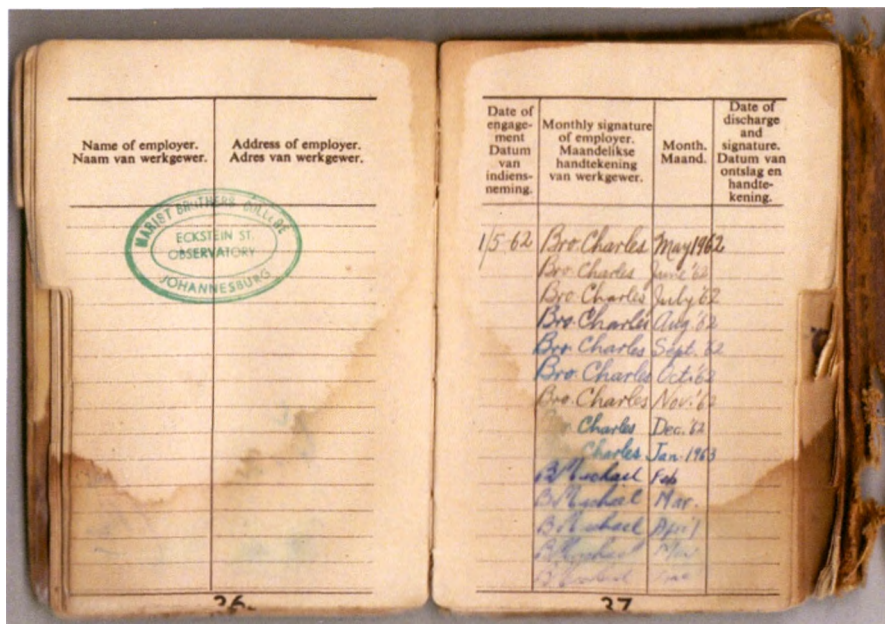 Name of employer.
Naam van werkgewer.
Address of employer.
Adres van werkgewer.
MARIST BROTHERS COLLEGE
ECKSTEIN ST.
OBSERVATORY
JOHANNESBURG
26.
Date of
engage-
ment
Datum
van
indiens-
neming.
Monthly signature
of employer.
Maandelikse
handtekening
van werkgewer.
Month.
Maand.
Date of
discharge
and
signature.
Datum van
ontslag en
handte-
kening.
1/5-62 Bro. Charles May 1962
Bro. Charles June '62
Bro. Charles July '62
Bro. Charles Aug. '62
Bro. Charles Sept. '62
Bro. Charles Oct. '62
Bro. Charles Nov. '62
Charles Dec. '62
Charles Jan. 1963
B Michael Feb
B Michael Mar.
B Michael April
B Michael May
B Michael June
37